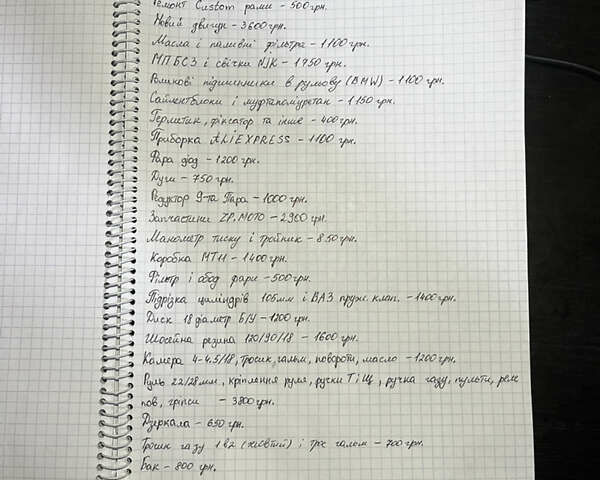 Ремонт Custom рами - 500 грн.
Новий двигун - 3600 грн.
Масла і паливні фільтра - 1100 грн.
МПБСЗ і свічки NJK - 1750 грн.
Роликові підшипники в рульову (BMW) - 1100 грн.
Сайлентблоки і муфтаполуретан - 1150 грн.
Герметик, фіксатор та інше - 400 грн.
Приборка ALIEXPRESS - 1100 грн.
Фара діод - 1200 грн.
Дуги - 750 грн.
Редуктор 9-та Пара - 1000 грн.
Запчастини ZP.MOTO - 2900 грн.
Манометр тиску і трійник - 850 грн.
Коробка МТ11 - 1400 грн.
Фільтр і обод фари - 500 грн.
Підрізка циліндрів 105мм і ВАЗ пруж. клап. - 1400 грн.
Диск 18 діаметр Б/У - 1200 грн.
Шосейна резина 120/90/18 - 1600 грн.
Камера 4-4.5/18, тросик, гальм, повороти, масло - 1200 грн.
Руль 22/28мм, кріплення руля, ручки Т і Щ, ручка газу, пульти, реле
пов, гріпси - 3800 грн.
Дзеркала - 650 грн.
Тросик газу 1 в 2 (жовтий) і трос гальм - 700 грн.
Бак - 800 грн.